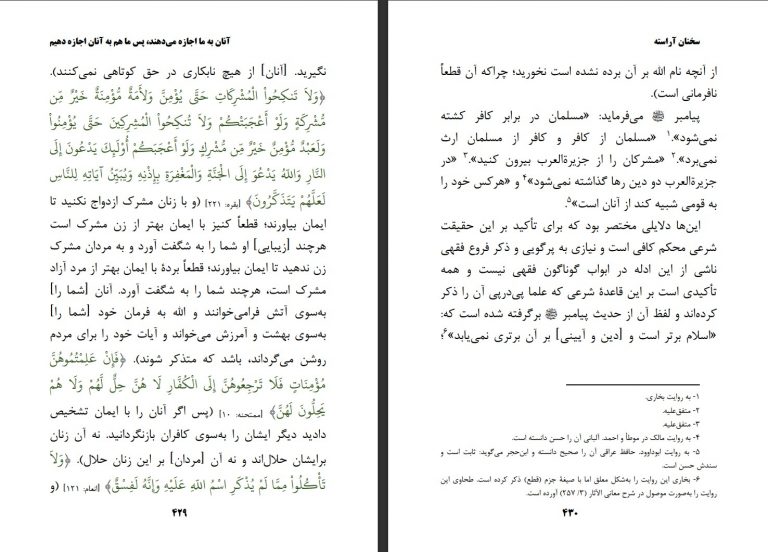 آنان به ما اجازه می‌دهند، پس ما هم به آنان اجازه دهیم
نگیرید. [آنان] از هیچ نابکاری در حق کوتاهی نمی‌کنند).
﴿وَلَا تَنكِحُواْ الْمُشْرِكَاتِ حَتَّى يُؤْمِنَّ وَلَأَمَةٌ مُّؤْمِنَةٌ خَيْرٌ مِّن
مُّشْرِكَةٍ وَلَوْ أَعْجَبَتْكُمْ وَلَا تُنكِحُواْ الْمُشِرِكِينَ حَتَّى يُؤْمِنُواْ
وَلَعَبْدٌ مُّؤْمِنٌ خَيْرٌ مِّن مُّشْرِكٍ وَلَوْ أَعْجَبَكُمْ أُوْلَئِكَ يَدْعُونَ إِلَى
النَّارِ وَاللهُ يَدْعُوَ إِلَى الْجَنَّةِ وَالْمَغْفِرَةِ بِإِذْنِهِ وَيُبَيِّنُ آيَاتِهِ لِلنَّاسِ
لَعَلَّهُمْ يَتَذَكَّرُونَ﴾ [بقره: ۲۲۱] (و با زنان مشرک ازدواج نکنید تا
ایمان بیاورند؛ قطعاً کنیز با ایمان بهتر از زن مشرک است
هرچند [زیبایی] او شما را به شگفت آورد و به مردان مشرک
زن ندهید تا ایمان بیاورند؛ قطعاً بردهٔ با ایمان بهتر از مرد آزاد
مشرک است، هرچند شما را به شگفت آورد. آنان [شما را]
به‌سوی آتش فرامی‌خوانند و الله به فرمان خود [شما را]
به‌سوی بهشت و آمرزش می‌خواند و آیات خود را برای مردم
روشن می‌گرداند، باشد که متذکر شوند). ﴿فَإِنْ عَلِمْتُمُوهُنَّ
مُؤْمِنَاتٍ فَلَا تَرْجِعُوهُنَّ إِلَى الْكُفَّارِ لَا هُنَّ حِلٌّ لَّهُمْ وَلَا هُمْ
يَحِلُّونَ لَهُنَّ﴾ [ممتحنه: ۱۰] (پس اگر آنان را با ایمان تشخیص
دادید دیگر ایشان را به‌سوی کافران بازنگردانید. نه آن زنان
برایشان حلال‌اند و نه آن [مردان] بر این زنان حلال). ﴿وَلَا
تَأْكُلُواْ مِمَّا لَمْ يُذْكَرِ اسْمُ اللهِ عَلَيْهِ وَإِنَّهُ لَفِسْقٌ﴾ [انعام: ۱۲۱] (و
۴۲۹
سخنان آراسته
از آنچه نام الله بر آن برده نشده است نخورید؛ چراکه آن قطعاً
نافرمانی است).
پیامبر ﷺ می‌فرماید: «مسلمان در برابر کافر کشته
نمی‌شود».۱ «مسلمان از کافر و کافر از مسلمان ارث
نمی‌برد».۲ «مشرکان را از جزیرة‌العرب بیرون کنید».۳ «در
جزیرة‌العرب دو دین رها گذاشته نمی‌شود»۴ و «هرکس خود را
به قومی شبیه کند از آنان است»۵.
این‌ها دلایلی مختصر بود که برای تأکید بر این حقیقت
شرعی محکم کافی است و نیازی به پرگویی و ذکر فروع فقهی
ناشی از این ادله در ابواب گوناگون فقهی نیست و همه
تأکیدی است بر این قاعدهٔ شرعی که علما پی‌درپی آن را ذکر
کرده‌اند و لفظ آن از حدیث پیامبر ﷺ برگرفته شده است که:
«اسلام برتر است و [دین و آیینی] بر آن برتری نمی‌یابد»۶؛
۱- به روایت بخاری.
۲- متفق‌علیه.
۳- متفق‌علیه.
۴- به روایت مالک در موطأ و احمد. آلبانی آن را حسن دانسته است.
۵- به روایت ابوداوود. حافظ عراقی آن را صحیح دانسته و ابن‌حجر می‌گوید: ثابت است و
سندش حسن است.
۶- بخاری این روایت را به‌شکل معلق اما با صیغهٔ جزم (قطع) ذکر کرده است. طحاوی این
روایت را به‌صورت موصول در شرح معانی الآثار (۳/ ۲۵۷) آورده است.
۴۳۰